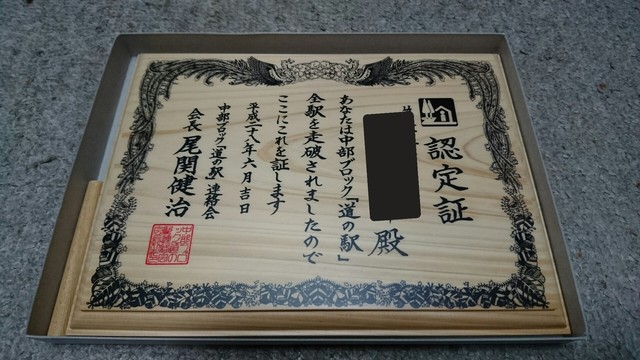 認定証
殿
あなたは中部ブロック「道の駅」
全駅を走破されましたので
ここにこれを証します
平成二十八年六月吉日
中部ブロック「道の駅」連絡会
会長 尾関健治